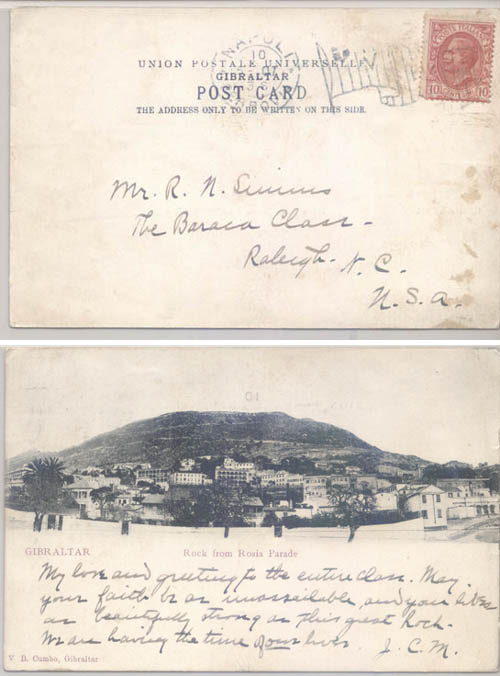 NAPOLI
10
POSTE ITALIANE
10 10
UNION POSTALE UNIVERSELLE
GIBRALTAR
POST CARD
THE ADDRESS ONLY TO BE WRITTEN ON THIS SIDE.
Mr. R. N. Simms
The Baraca Class -
Raleigh. N. C.
U. S. A.
GIBRALTAR
Rock from Rosia Parade
My love and greeting to the entire class. May
your faith be as unassailable, and your lives
as beautifully strong as this great Rock.
We are having the time of our lives. J. C. M.
V. B. Cumbo, Gibraltar